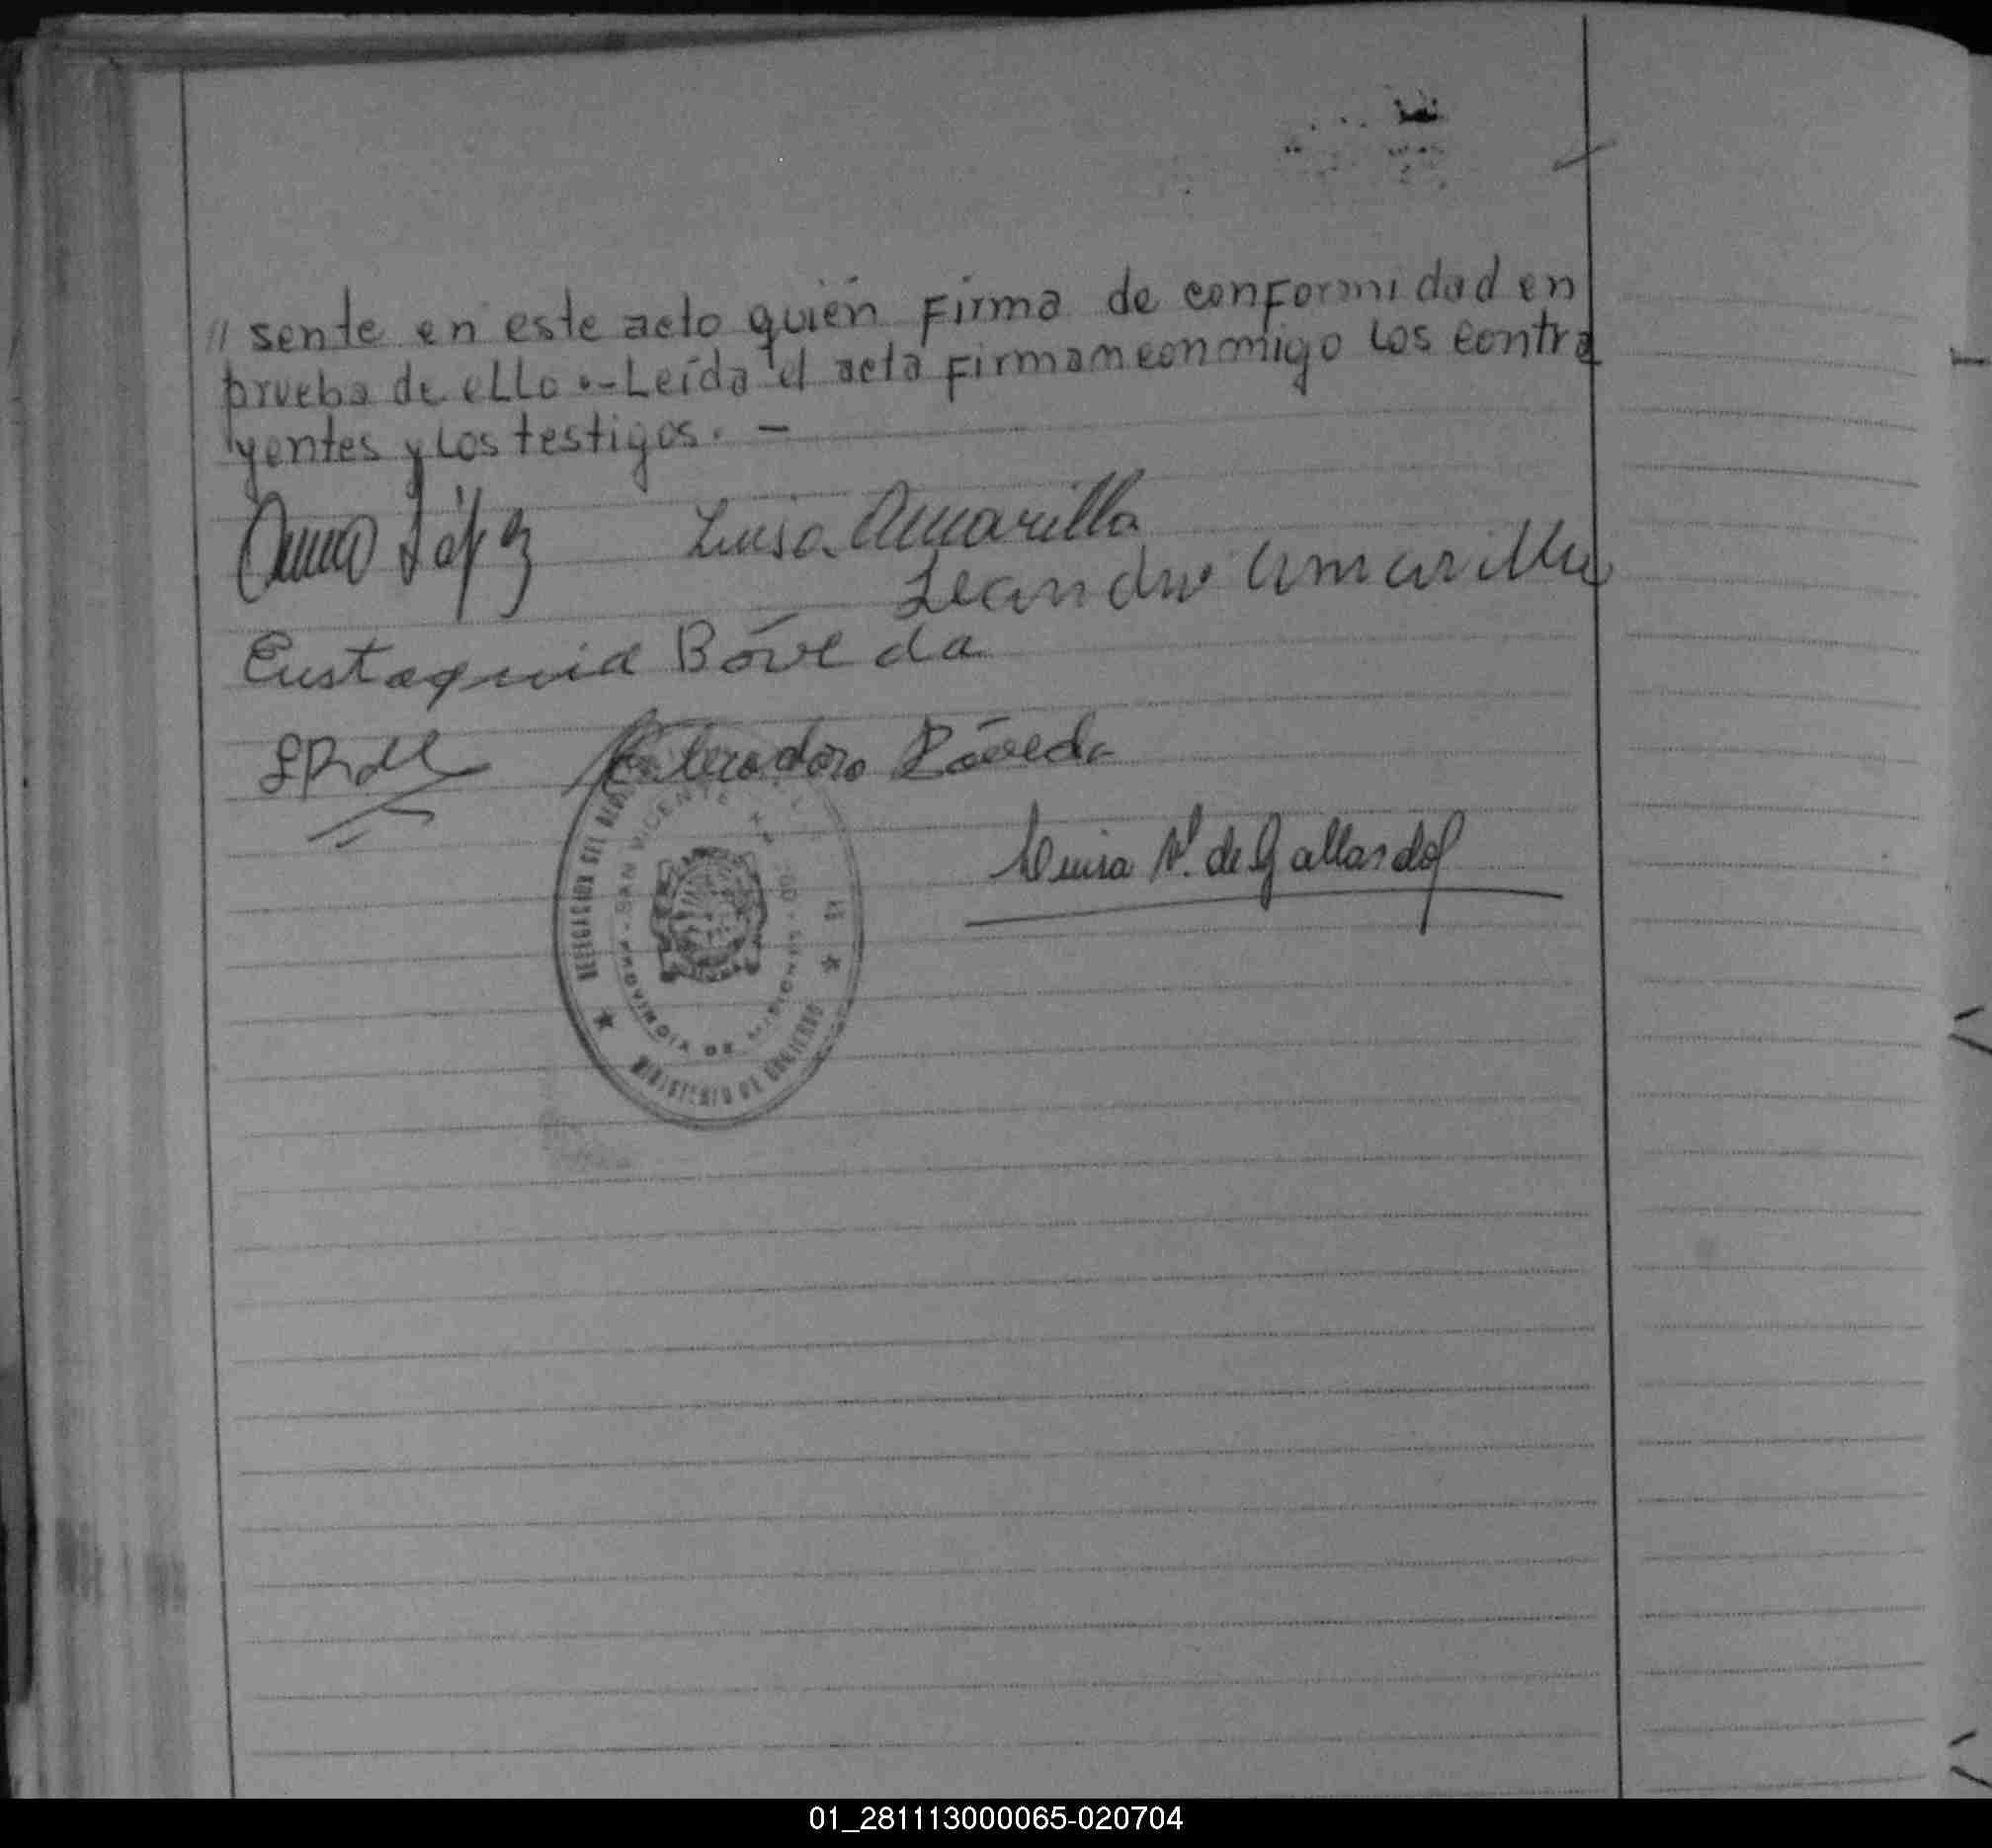 // sente en este acto quién firma de conformidad en
prueba de ello.- Leída el acta firman conmigo los contra
yentes y los testigos. -
López Luisa Amarilla
Leandro Amarilla
Eustaquia Bóveda
Bóveda
Luisa V. de Gallardo
DELEGACION DEL
SAN VICENTE
PROVINCIA DE MISIONES
MINISTERIO DE GOBIERNO
01_281113000065-020704